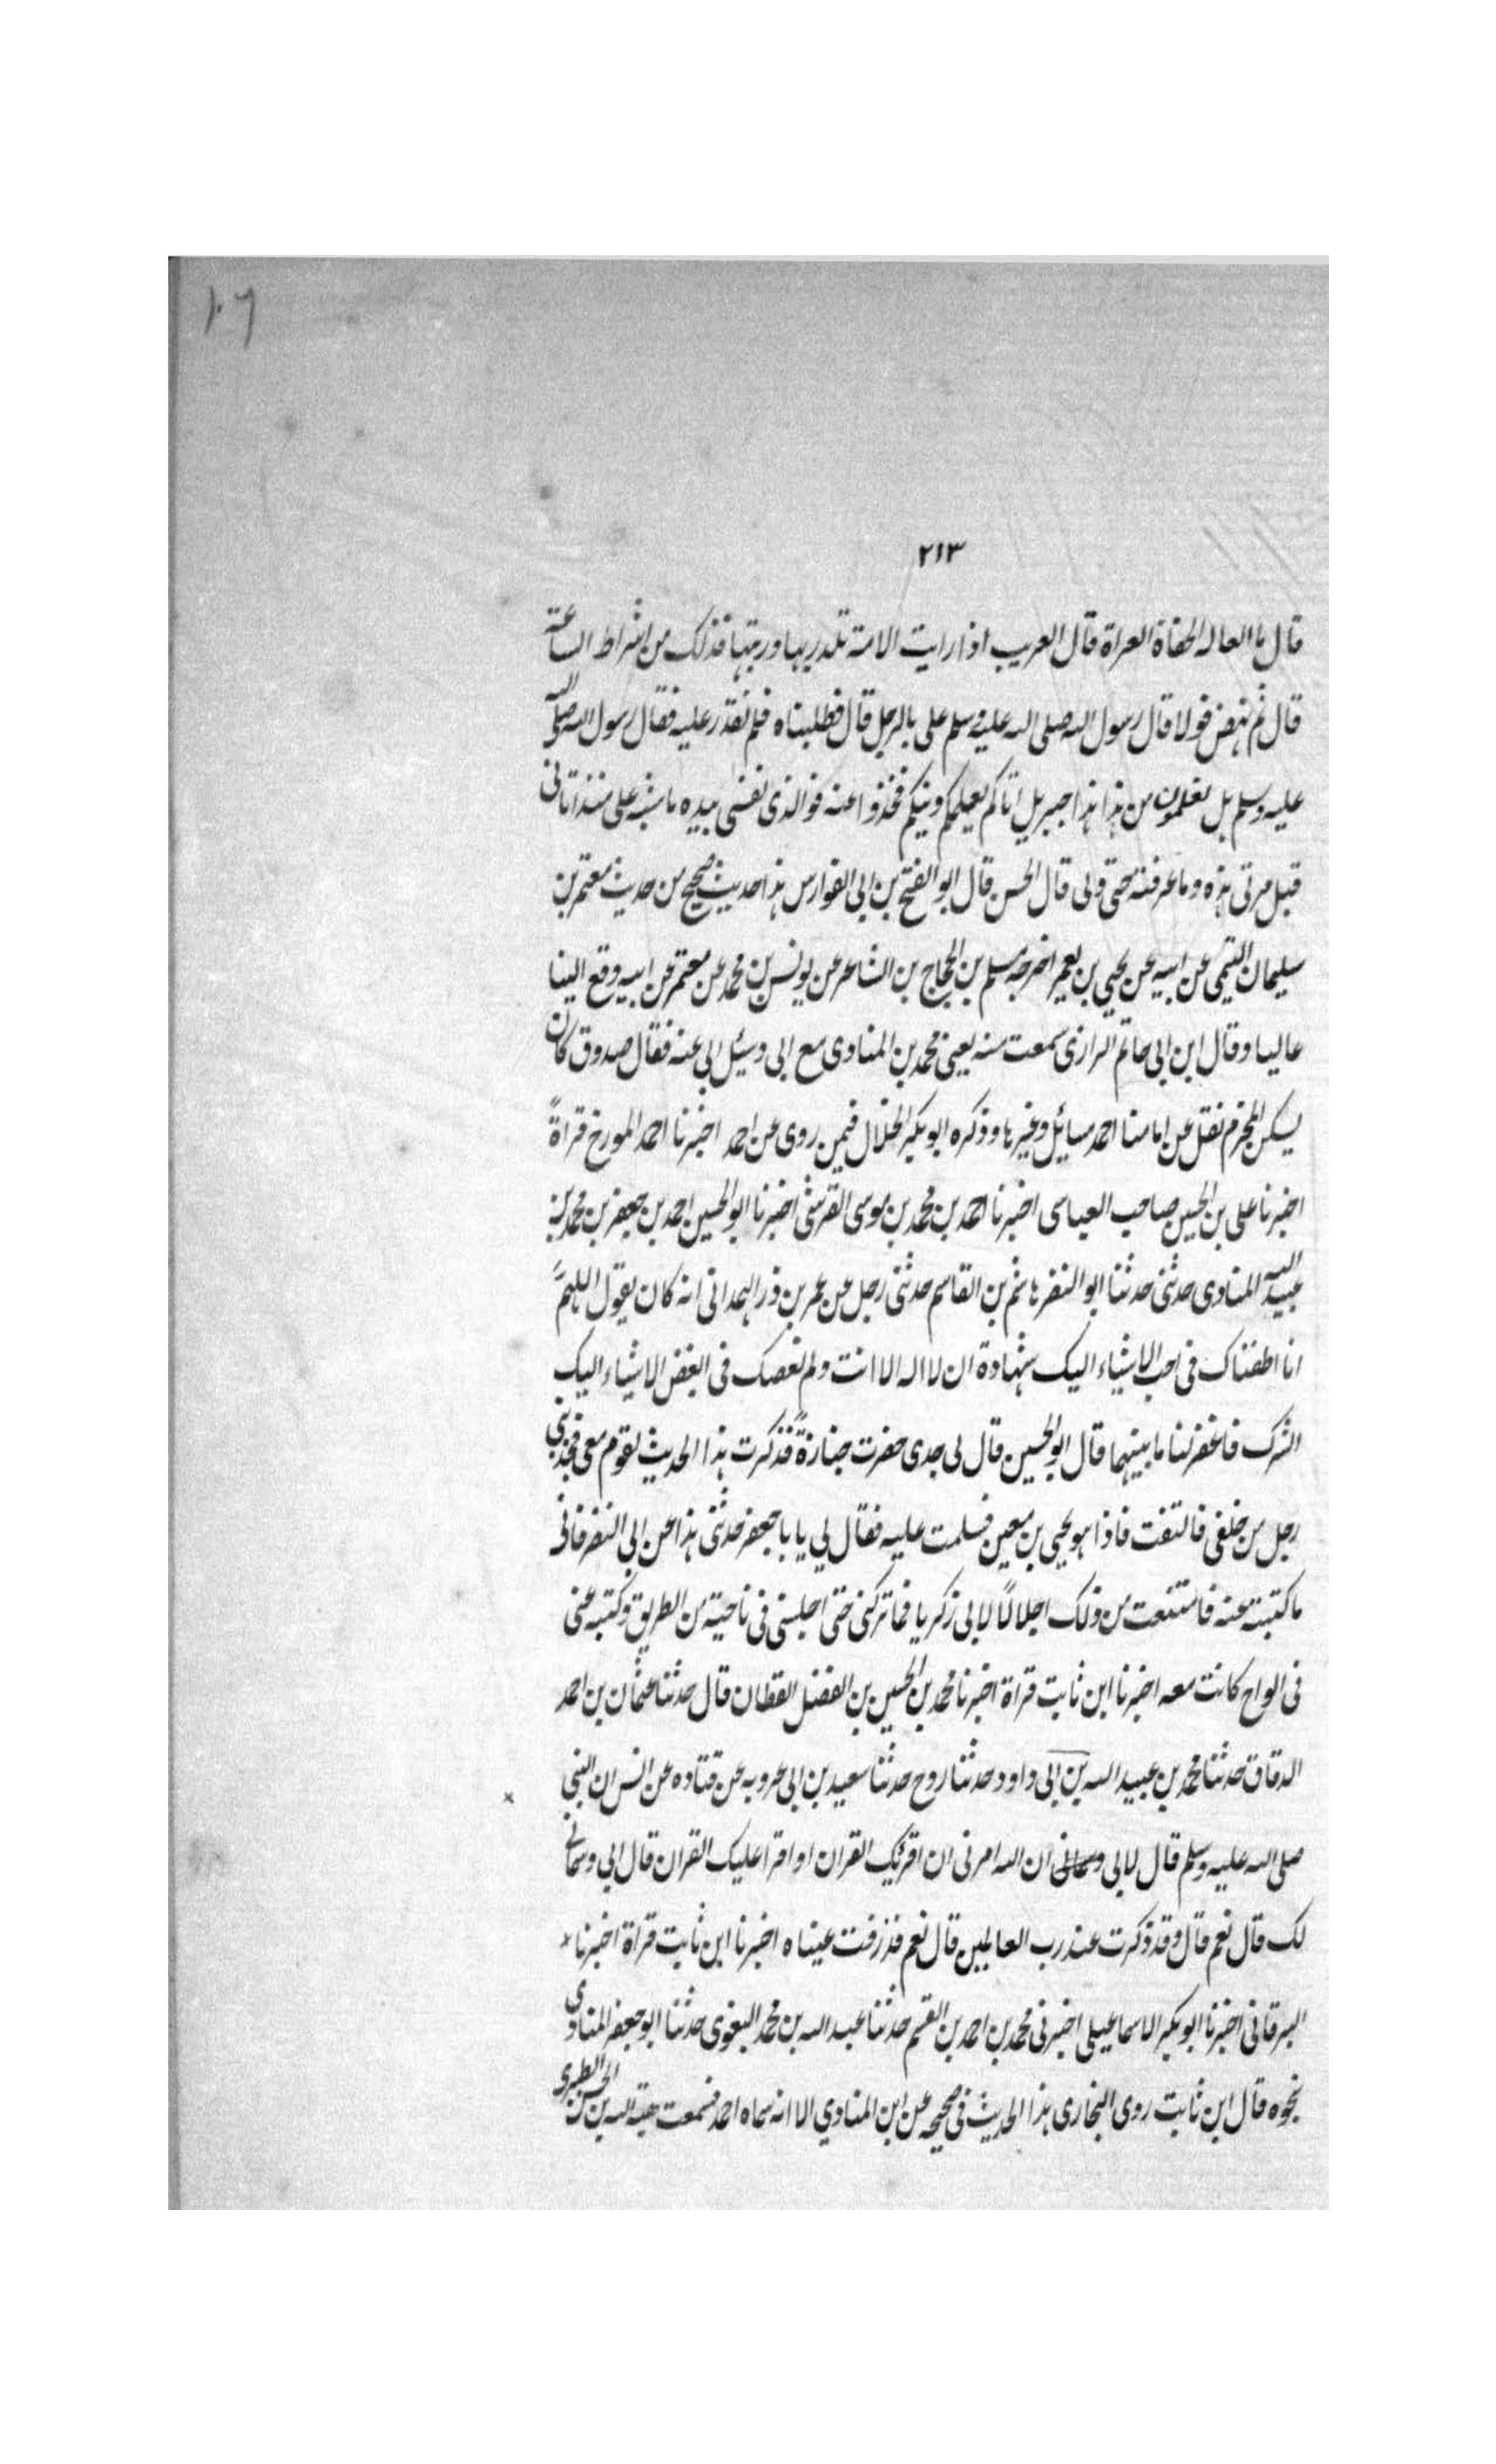 ١٠٦
٢١٣
قال ما العالة الحفاة العراة قال العريب اذا رايت الامة تلد ربها وربتها فذلك من اشراط الساعة
قال ثم نهض فولا قال رسول الله صلى الله عليه وسلم على بالرجل قال فطلبناه فلم نقدر عليه فقال رسول الله صلى الله
عليه وسلم بل تعلمون من هذا هذا جبريل اتاكم يعلمكم دينكم فخذوا عنه فوالذى نفسى بيده ما شبه على منذ اتانى
قبل مرتى هذه وما عرفته حتى ولى قال الحسن قال ابو الفتح بن ابى الفوارس هذا حديث صحيح من حديث معتمر بن
سليمان التيمى عن ابيه عن يحيى بن يعمر اخرجه مسلم بن الحجاج بن الشاعر عن يونس بن محمد عن معتمر عن ابيه وقع الينا
عاليا وقال ابن ابى حاتم الرازى سمعت منه يعنى محمد بن المنادى مع ابى وسئل ابى عنه فقال صدوق كان
يسكن المخرم نقل عن امامنا احمد مسائل وغيرها وذكره ابو بكر الخلال فيمن روى عن احمد اخبرنا احمد المورخ قراةً
اخبرنا على بن الحسين صاحب العباسى اخبرنا احمد بن محمد بن موسى القرشى اخبرنا ابو الحسين احمد بن جعفر بن محمد بن
عبيد الله المنادى حدثنى حدثنا ابو النضر هاشم بن القاسم حدثنى رجل عن عمر بن ذر الهمدانى انه كان يقول اللهمَّ
انا اطعناك فى احب الاشياء اليك شهادة ان لا اله الا انت ولم نعصك فى ابغض الاشياء اليك
الشرك فاغفر لنا ما بينهما قال ابو الحسين قال لى جدى حضرت جنازةً فذكرت هذا الحديث لقوم معى فجذبنى
رجل من خلفى فالتفت فاذا هو يحيى بن معين فسلمت عليه فقال لي يا با جعفر حدثنى هذا عن ابى النضر فانى
ما كتبته عنه فامتنعت من ذلك اجلالًا لابى زكريا فما تركنى حتى اجلسنى فى ناحية من الطريق وكتبه عنى
فى الواح كانت معه اخبرنا ابن ثابت قراة اخبرنا محمد بن الحسين بن الفضل القطان قال حدثنا عثمان بن احمد
الدقاق حدثنا محمد بن عبيد الله بن ابى داود حدثنا روح حدثنا سعيد بن ابى عروبه عن قتاده عن انس ان النبى
صلى الله عليه وسلم قال لابى ان الله امرنى ان اقرئك القران او اقرا عليك القران قال ابى وسمانى
لك قال نعم قال وقد ذكرت عند رب العالمين قال نعم فذرفت عيناه اخبرنا ابن ثابت قراة اخبرنا
البرقانى اخبرنا ابو بكر الاسماعيلى اخبرنى محمد بن احمد بن القسم حدثنا عبد الله بن محمد البغوى حدثنا ابو جعفر المنادى
نحوه قال ابن ثابت روى البخارى هذا الحديث فى صحيحه عن ابن المنادي الا انه سماه احمد فسمعت هبة الله بن الحسن الطبرى